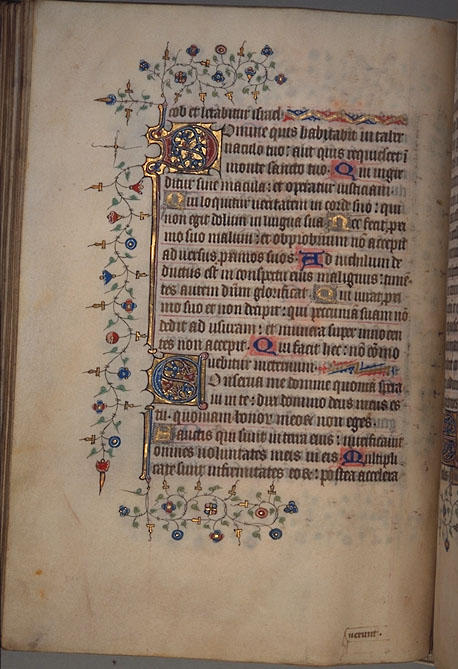 cob et letabitur israel.
Domine quis habitabit in taber
naculo tuo: aut quis requiescet ī
monte sancto tuo. Qui ingre
ditur sine macula: et operatur iusticiam
Qui loquitur veritatem in corde suo: qui
non egit dolum in lingua sua. Nec fecit pxi
mo suo malum: et obprobrium nō accepit
adversus pximos suos. Ad nichilum de
ductus est in conspectu eius malignus: timē
tes autem dūm glorificat. Qui iurat pxi
mo suo et non decipit: qui pecuniā suam nō
dedit ad usuram: et munera super innocen
tes non accepit. Qui facit hec: nō cōmo
vebitur in eternum.
Conserva me domine quoniā spera
vi in te: dixi domino deus meus es
tu. quoniam bonoꝝ meoꝝ non eges.
Sanctis qui sunt in terra eius: mirificavit
omnes voluntates meas in eis. Multipli
cate sunt infirmitates eoꝝ: postea accelera
verunt.